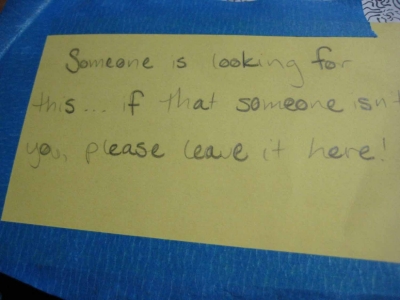 Someone is looking for
this... if that someone isn't
you, please leave it here!